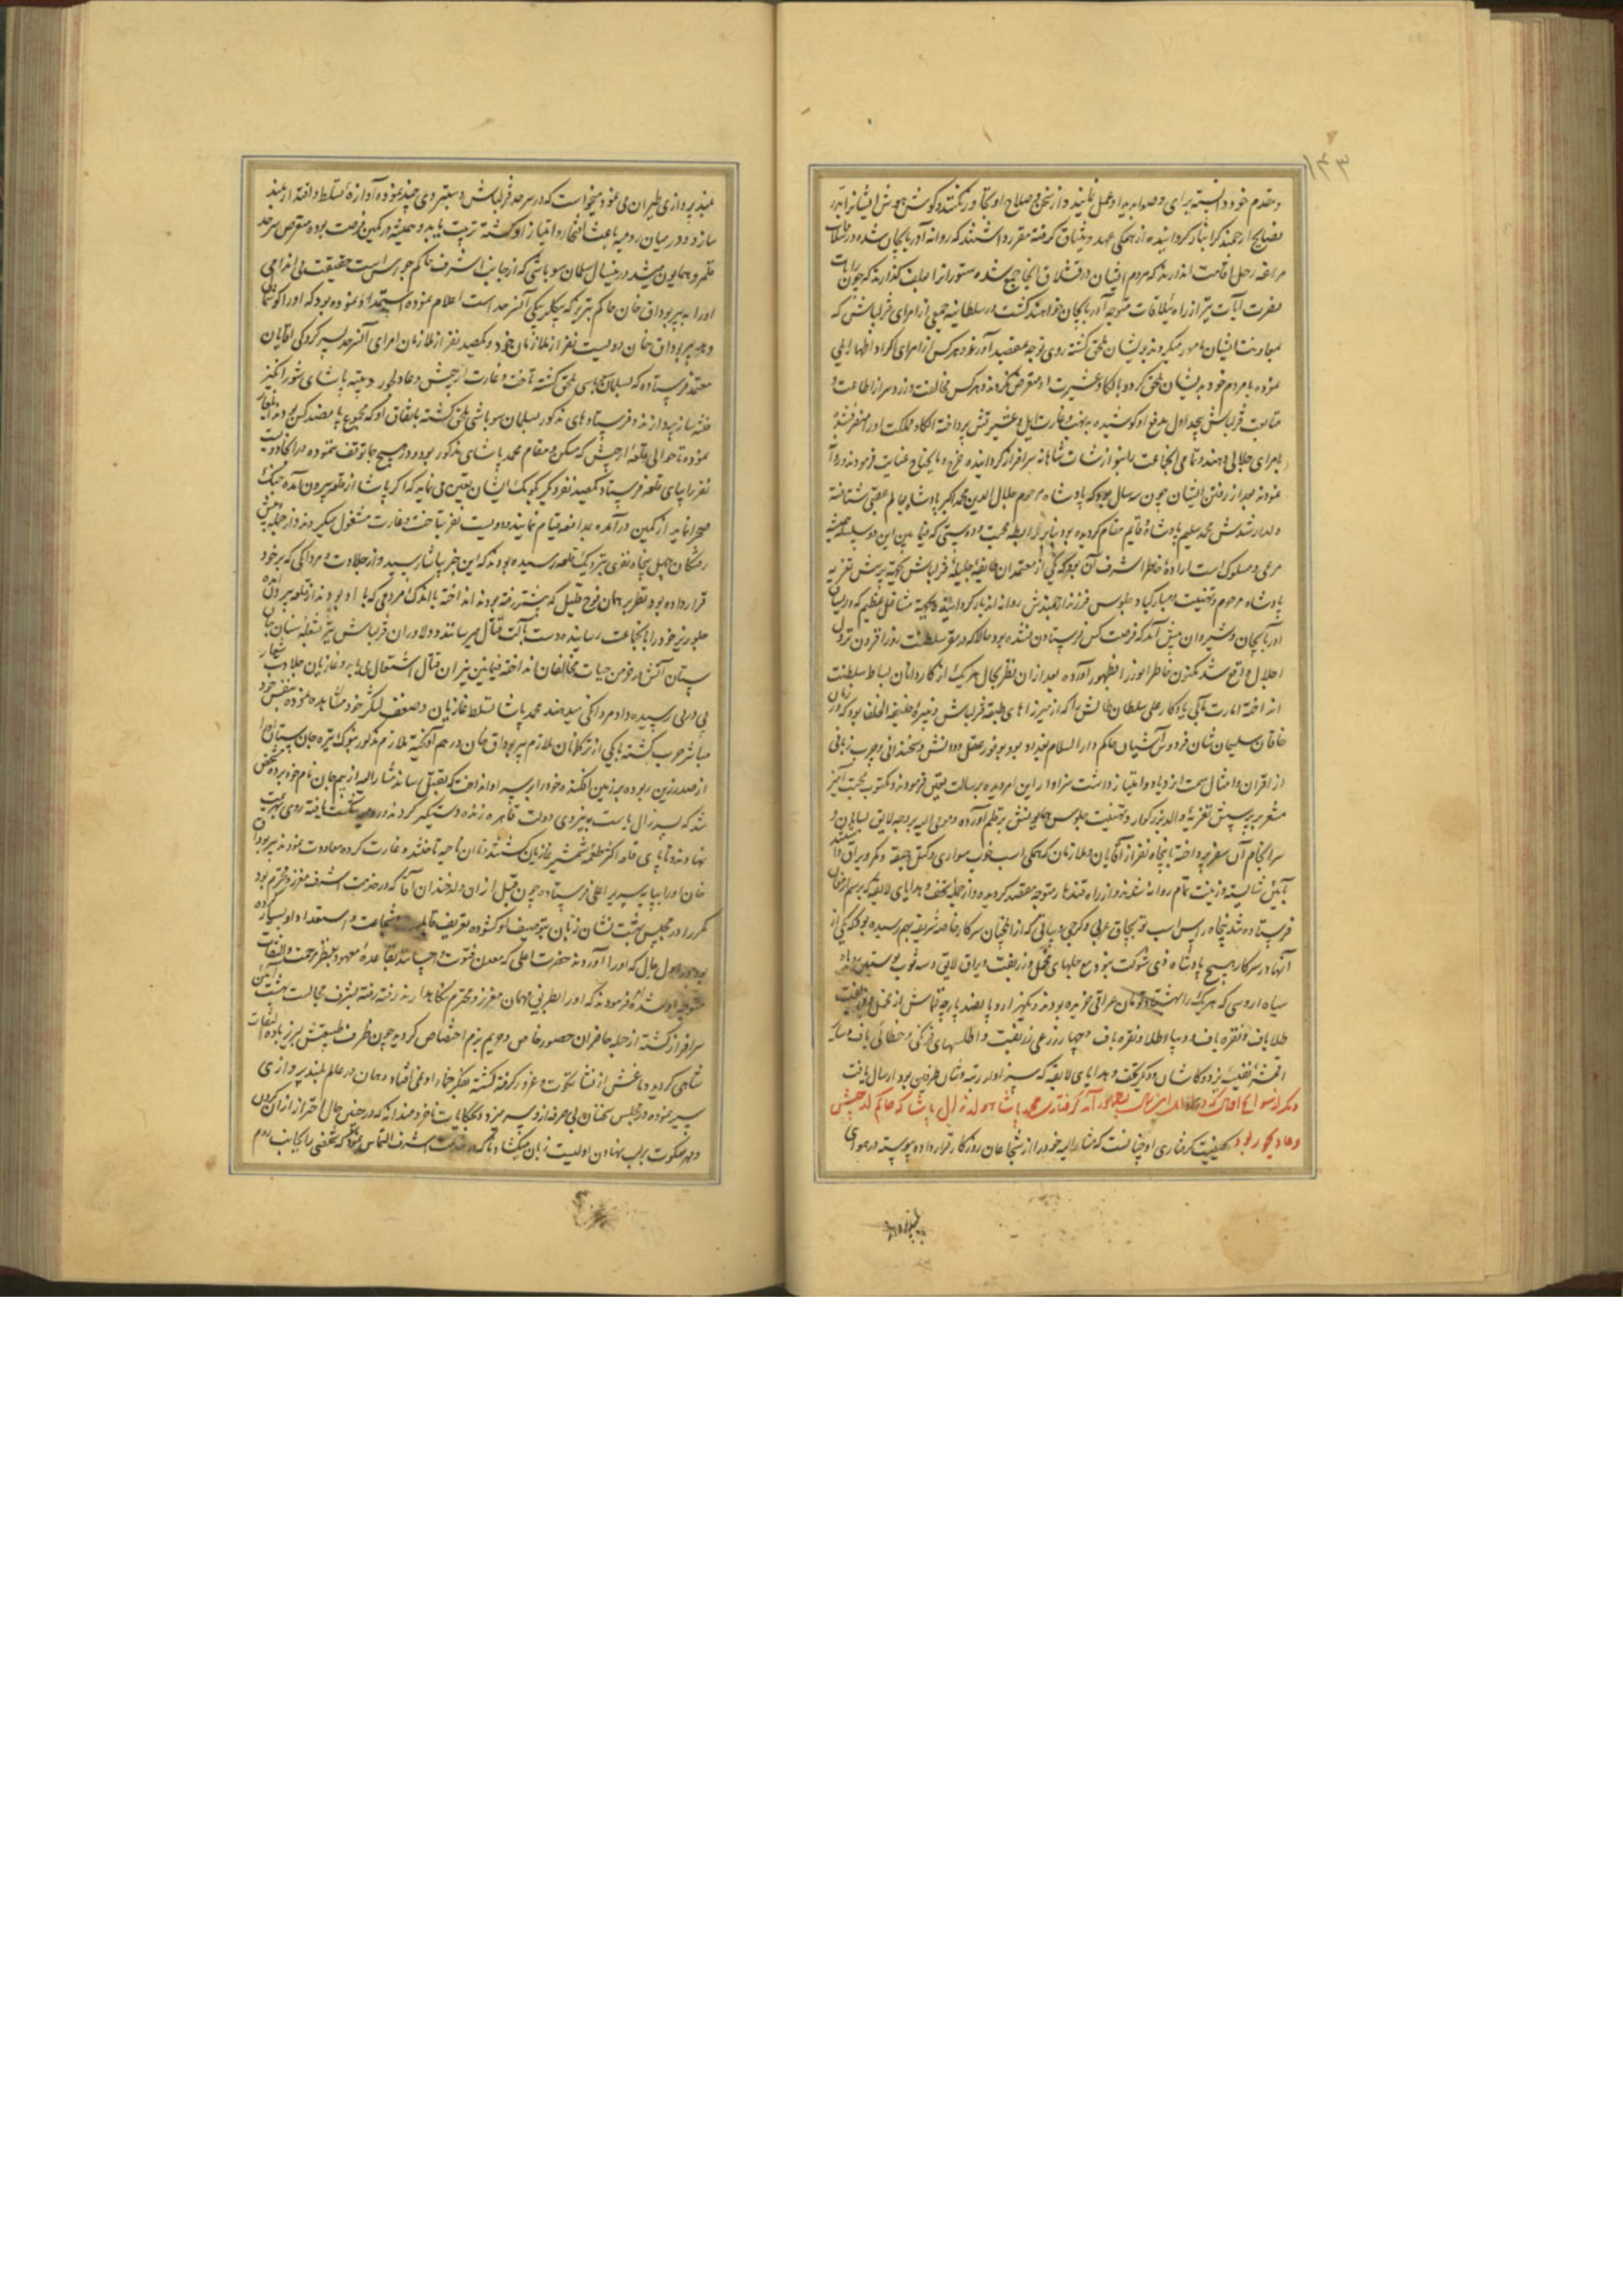 ۱۴۳
و مقدم خود دانسته برای و صوابدید او عمل نمایند و از سخن و صلاح او تجاوز نکنند و گوش هوش ایشانرا بدرر
نصایح ارجمند گرانبار گردانیده از همگی عهد و میثاق گرفته مقرر داشتند که روانه آذربایجان شده در
مراغه رحل اقامت اندازند که مردم ایشان در قشلاق آنجا جمع شده ستورانرا بعلف گذارند که چون رایات
نصرت آیات نیز از راه ییلاقات متوجه آذربایجان خواهند گشت در سلطانیه جمعی از امرای قزلباش که
بمعاونت ایشان مامور میگردند بدیشان ملحق گشته روی توجه بمقصد آورند و هر کس از امرای اکراد اظهار ایلی
نموده با مردم خود بدیشان ملحق گردد بالکا و عشیرت او متعرض نگردند و هر کس مخالفت ورزد و سر از اطاعت و
متابعت قزلباش پیچد اول بدفع او کوشیده به نهب و غارت ایل و عشیرتش پرداخته الکا و مملکت او را
بامرای جلالی دهند و تمامی آنجماعت را بنوازشات شاهانه سرافراز گردانیده خرج و مایحتاج عنایت فرمودند و روانه
نمودند بعد از رفتن ایشان چون سه سال بود که پادشاه مرحوم جلال الدین محمد اکبر پادشاه بعالم عقبی شتافته
ولد ارشدش محمد سلیم پادشاه قایم مقام گردیده بود بنابر رابطه محبت و دوستی که فیمابین این دو سلسله همیشه
مرعی و مسلوک است اراده خاطر اشرف آن بود که یکی از معتمدان طایفه جلیله قزلباش بجهت پرسش تعزیه
پادشاه مرحوم و تهنیت و مبارکباد جلوس فرزند ارجمندش روانه اندیار گردانند که بجهة مشاغل عظیم که در میان
آذربایجان و شیروان پیش آمد که فرصت کس فرستادن نشده بود حالا که در مقر سلطنت روزافزون نزول
اجلال واقع شد مکنون خاطر انور را بظهور آورده بعد از آن نظر بحال هر یک از کاردانان بساط سلطنت
انداخته امارت مآبی یادگار علی سلطان طالش را که از میرزاهای طبقه قزلباش و نبیره خلیفة الخلفا بود که در زمان
خاقان سلیمان شان فردوس آشیان حاکم دارالسلام بغداد بود بوفور عقل و دانش و سخندانی و چرب زبانی
از اقران و امثال سمت ازدیاد و امتیاز داشت سزاوار این امر دیده برسالت تعیین فرمودند و مکتوب محبت آمیز
مشعر بر پرسش تعزیه والد بزرگوار و تهنیت جلوس همایونش بر قلم آورده و مومی الیه بر وجه لایق سامان و
سرانجام آن سفر پرداخته با پنجاه نفر از آقایان و ملازمان که همگی اسب خوب سواری و کتل و جیقه و کمر و یراق داشتند
بآیین شایسته و زینت تمام روانه شدند و از راه قندهار متوجه مقصد گردیده و از جمله تحف و هدایای لایقه که برسم ارمغان
فرستاده شد پنجاه راس اسب توبچاق عربی و گرجی و بیاتی که از ایلخیان سرکار خاصه شریفه بهم رسیده بود که یکی از
آنها در سرکار هیچ پادشاه ذی شوکت نبود مع جلهای مخمل و زربفت و یراق لایق و سه ثوب پوستین روباه
سیاه اروسی که هر یک را به هشتاد تومان عراقی خریده بودند و یکهزار و پانصد پارچه قماش از مخمل و زربفت
طلاباف و نقره باف و دیبا و طلا و نقره باف و چهار زرعی زربفت و اطلسهای فرنگی و خطائی باف و سایر
اقمشه نفیسه یزد و کاشان و دیگر تحف و هدایای لایقه که سزاوار رتبه و شان طرفین بود ارسال یافت
دیگر از سوانح اقبال که در این سال بظهور آمد گرفتاری محمد پاشا ولد زال پاشا که حاکم ارجیش
و عادلجوز بود کیفیت گرفتاری او چنانست که مشارالیه خود را از شجاعان روزگار قرار داده پیوسته در هوای
بلند پروازی
بلند پروازی طیران می نمود و میخواست که در سرحد قزلباش دستبردی چند نموده آوازه تسلط و اقتدار بلند
سازد و در میان رومیه باعث افتخار و امتیاز او گشته تربیت یابد و همیشه در کمین فرصت بوده متعرض سرحد
قلمرو همایون میشد در ینسال سلمان سوباشی که از جانب اشرف حاکم است حقیقت بی اندامی
او را به پیربوداق خان حاکم تبریز که بیگلربیگی آنسرحد است اعلام نموده استمداد نموده بود که او را گوشمال
دهد پیربوداق خان دویست نفر از ملازمان خود و یکصد نفر از ملازمان امرای آنسرحد بسرکردگی آقایان
معتمد فرستاده که بسلمان سوباشی ملحق گشته تاخت و غارت ارجیش و عادلجوز و تنبیه پاشای شورانگیز
فتنه ساز پردازند و فرستاده های مذکور بسلمان سوباشی ملحق گشته باتفاق او که مجموع پانصد کس بودند ایلغار
نموده تا حوالی قلعه ارجیش که مسکن و مقام محمد پاشای مذکور بود در هیچ جا توقف ننموده در آنجا دویست
نفر را بپای قلعه فرستاده یکصد نفر دیگر بکومک ایشان تعیین می نماید که اگر پاشا از قلعه بیرون آمده جنگ
صحرا نماید از کمین درآمده بمدافعه قیام نمایند و دویست نفر بتاخت و غارت مشغول میگردند و از جمله پیش
رفتگان چهل پنجاه نفری بنزدیک قلعه رسیده بودند که این خبر بپاشا رسید و از جلادت و مردانگی که بر خود
قرار داده بود نظر بر همان فوج قلیل که پیشتر رفته بودند انداخته با اندک مردمی که با او بودند از قلعه بیرون آمده
جلوریز خود را بآنجماعت رسانیده دست بآلت قتال میرسانند و دلاوران قزلباش نیز بشعله سنان جان
ستان آتش در خرمن حیات مخالفان انداخته فیمابین نیران قتال اشتعال می یابد و غازیان جلادت شعار
پی در پی رسیده داد مردانگی میدهند محمد پاشا تسلط غازیان و ضعف لشکر خود مشاهده نموده بنفس خود
مباشر حرب گشته با یکی از ترکمانان ملازم پیربوداق خان در هم آویخته ملازم مذکور بنوک نیزه جان ستان او را
از صدر زین ربوده بر زمین افکنده خود را بر سر او انداخت که بقتل رساند مشارالیه از بیم جان نام خود برده مشخص
شد که پسر زال پاشاست بنیروی دولت قاهره زنده دستگیر کردند و رومیه شکست یافته روی بهزیمت
نهادند و تا پای قلعه اکثر طعمه شمشیر غازیان گشتند و آن ناحیه تاختند و غارت کرده معاودت نمودند پیربوداق
خان او را بپایه سریر اعلی فرستاده چون قبل از آن ولد خندان آقا که در خدمت اشرف معزز و محترم بود
مکرر در مجلس بهشت نشان زبان بتوصیف او گشوده تعریف قابلیت و شجاعت و استعداد او بسیار کرده
بود در اول حال که او را آوردند حضرت اعلی که معدن فتوت و احسانند بقاعده معهود بنظر مرحمت و التفات
متوجه او شده فرمودند که او را بطریق مهمان معزز و محترم نگاهدارند رفته رفته بشرف مجالست بهشت آیین
سرافراز گشته از جمله حاضران حضور خاص و حریم بزم اختصاص گردید چون ظرف طبیعتش لبریز باده التفات
شاهی گردید دماغش از نشأ نخوت و غرور گرفته گشته بفکر خمار او نمی افتاد و همان در عالم بلند پروازی
سیر نموده در مجلس سخنان بی صرفه از و سر میزد و بحکایات ناخردمندانه که در چنین حال احتراز از آن کردن
و مهر سکوت بر لب نهادن اولیست زبان میگشاد تا آنکه در خدمت اشرف التماس نمود که شخصی را بجانب روم